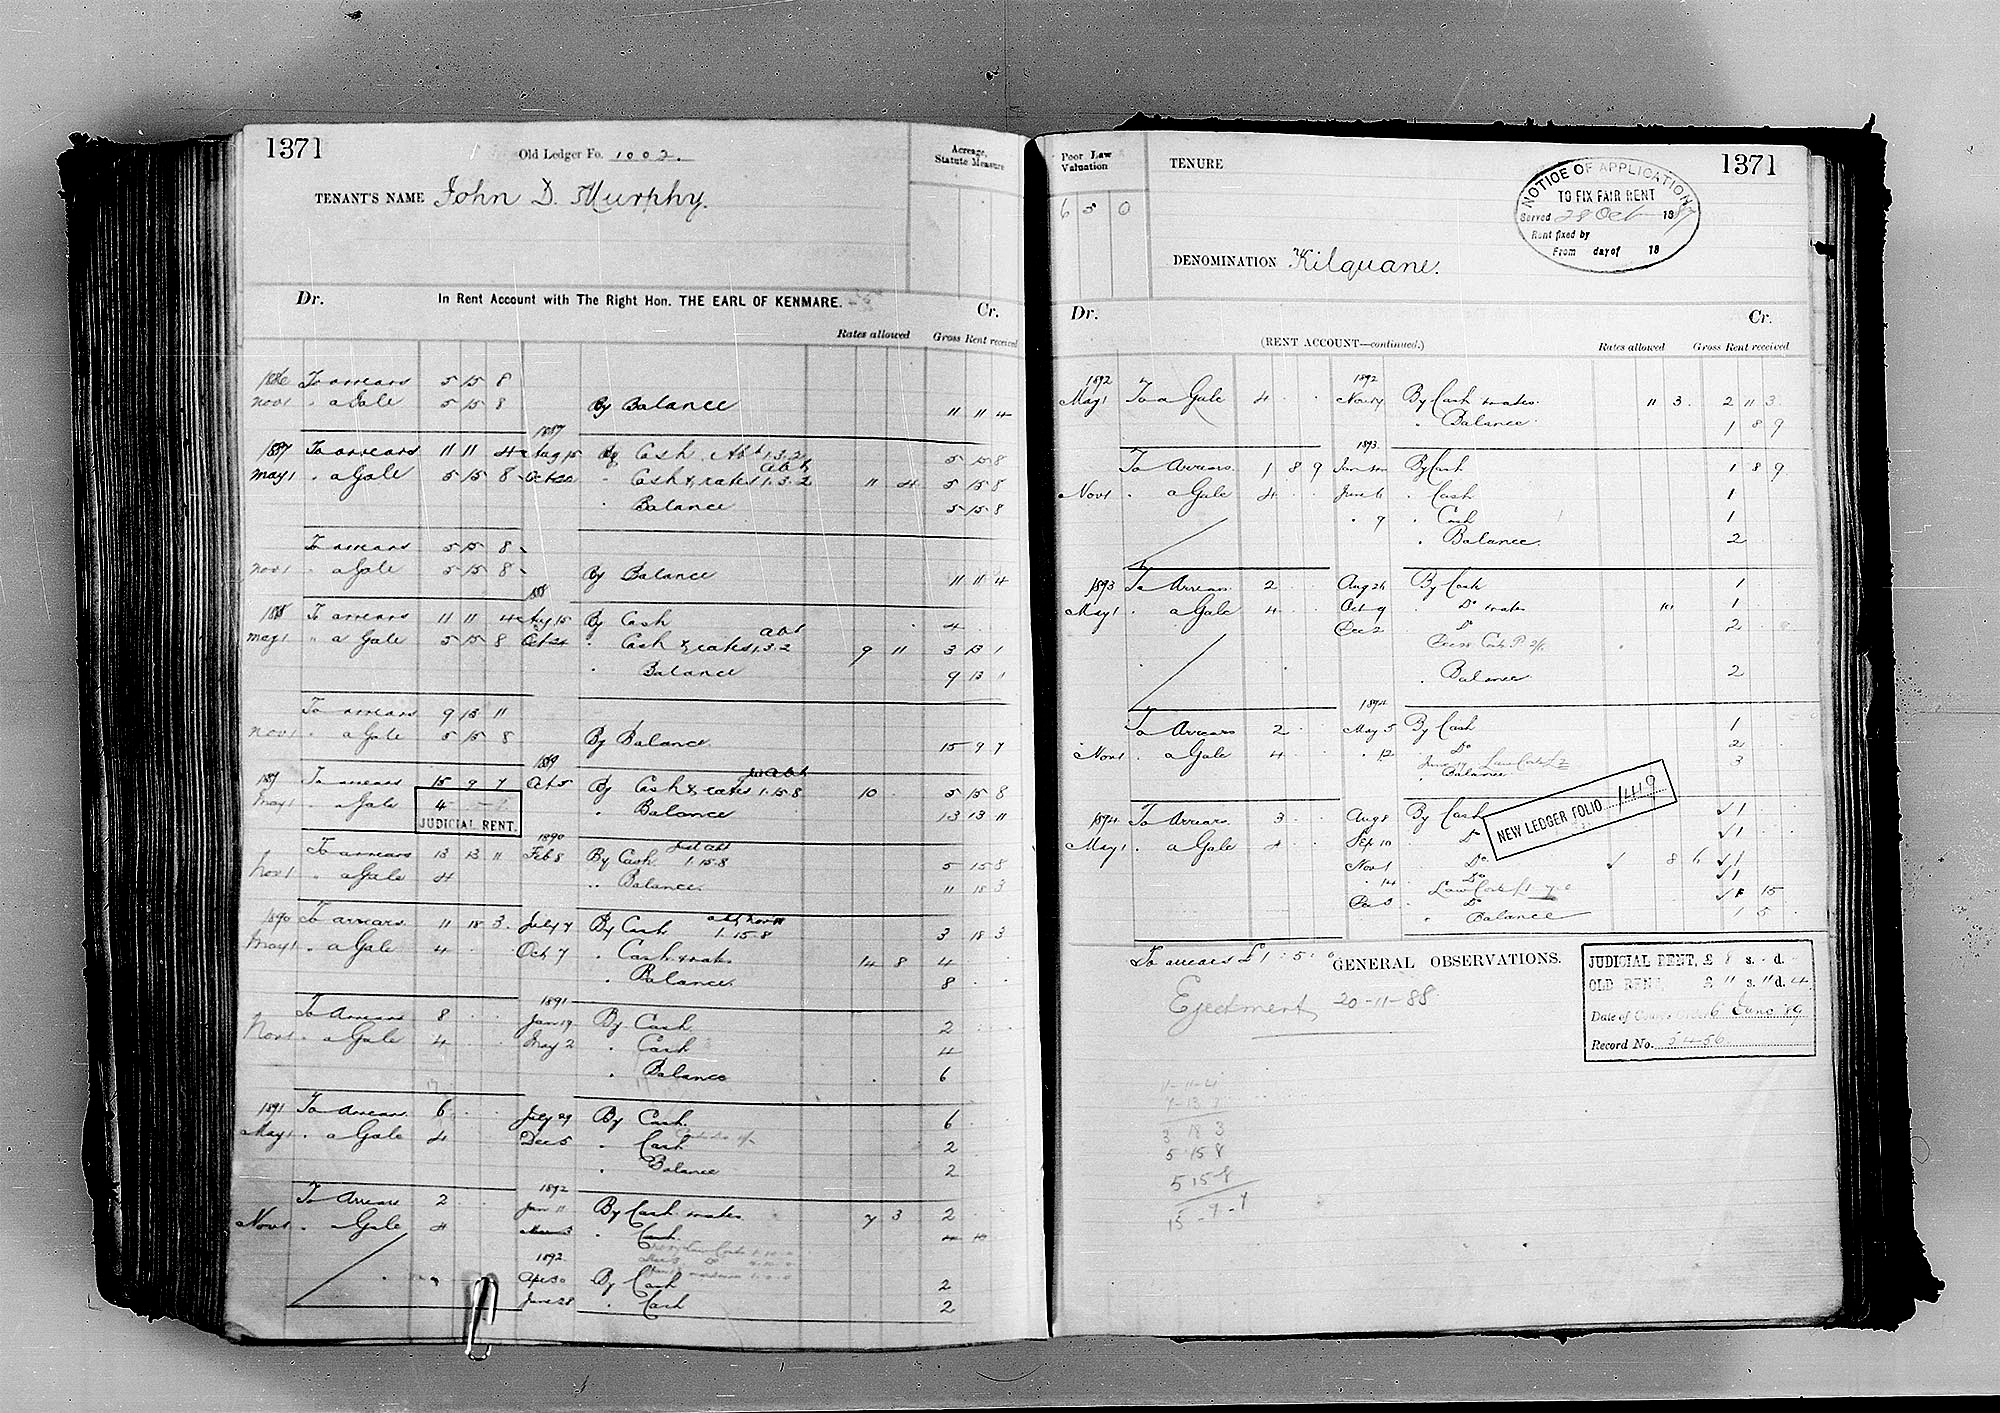 1371
Old Ledger Fo. 1002.
Acreage, Statute Measure
TENANT'S NAME John D. Murphy.
Dr. In Rent Account with The Right Hon. THE EARL OF KENMARE. Cr.
Rates allowed Gross Rent received
1886 To arrears 5 15 8
Nov 1 " a Gale 5 15 8 By Balance 11 11 4
1887
1887 To arrears 11 11 4 Aug 15 By Cash Abt 1.3.2 5 15 8
May 1 " a Gale 5 15 8 Oct 20 " Cash & rates abt 1.3.2 11 4 5 15 8
" Balance 5 15 8
To arrears 5 15 8
Nov 1 " a Gale 5 15 8 By Balance 11 11 4
1888
1888 To arrears 11 11 4 Aug 15 By Cash 4
May 1 " a Gale 5 15 8 Oct 24 " Cash & rates abt 1.3.2 9 11 3 13 1
" Balance 9 13 11
To arrears 9 13 11
Nov 1 " a Gale 5 15 8 By Balance 15 9 7
1889
1889 To arrears 15 9 7 Oct 5 By Cash & rates abt 1.15.8 10 5 15 8
May 1 " a Gale 4 " Balance 13 13 11
JUDICIAL RENT.
1890
To arrears 13 13 11 Feb 8 By Cash abt 1.15.8 5 15 8
Nov 1 " a Gale 4 " Balance. 11 18 3
1890 To arrears. 11 18 3. July 7 By Cash 1.15.8 3 18 3
May 1 " a Gale 4 Oct 7 " Cash & rates 14 8 4
" Balance 8
1891
To Arrears 8 Jan 19 By Cash 2
Nov 1 " a Gale 4 May 2 " Cash 4
" Balance 6
1891 To Arrears 6 July 29 By Cash. 6
May 1 " a Gale 4 Dec 5 " Cash 2
" Balance 2
1892
To Arrears 2 Jan 11 By Cash & rates 7 3 2
Nov 1 " a Gale 4 Mar 3 " Cash 4 10
1892.
Apr 30 By Cash 2
June 28 " Cash 2
Poor Law Valuation
6 5 0
TENURE
1371
NOTICE OF APPLICATION
TO FIX FAIR RENT
Served 28 Oct 1887
Rent fixed by
From day of 18
DENOMINATION Kilquane.
Dr. Cr.
(RENT ACCOUNT—continued.) Rates allowed Gross Rent received
1892 1892
May 1 To a Gale 4 Nov 17 By Cash & rates. 11 3. 2 11 3
" Balance. 1 8 9
1893.
To Arrears. 1 8 9 By Cash 1 8 9
Nov 1 " a Gale 4 June 6 " Cash 1
" 9 " Cash 1
" Balance. 2
1893 To Arrears 2 Aug 26 By Cash 1
May 1 " a Gale 4 Oct 9 " Do & rates 1
Dec 2 " Do 2
" Balance 2
1894
To Arrears 2 May 5 By Cash 1
Nov 1 " a Gale 4 " 12 " Do 2
" Balance 3
NEW LEDGER FOLIO 1449
1894 To Arrears. 3 Aug 8 By Cash 1
May 1 " a Gale 4 Sep 10 Do 1
Nov 1 Do 8 6 1
" 14 Do 1
Law Costs £1 7-0
Dec 3 " Do 1 15
" Balance 1 5
To arrears £1.5.0
GENERAL OBSERVATIONS.
Ejectment 20-11-88
JUDICIAL RENT, £ 8 s. - d. -
OLD RENT, £ 11 s. 11 d. 4
Date of Court Order 6 June 89
Record No. 2456.
11-11-4
7-13-1
3 18 3
5 15 8
5 15 8
15-9-7